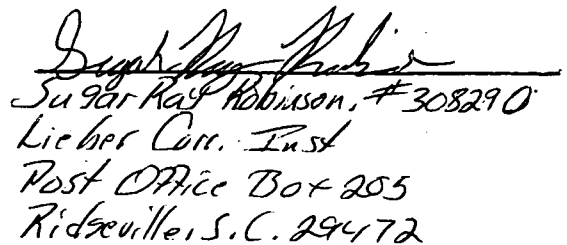 Sugar Ray Robinson
Sugar Ray Robinson, #308290
Lieber Corr. Inst
Post Office Box 205
Ridgeville, S.C. 29472